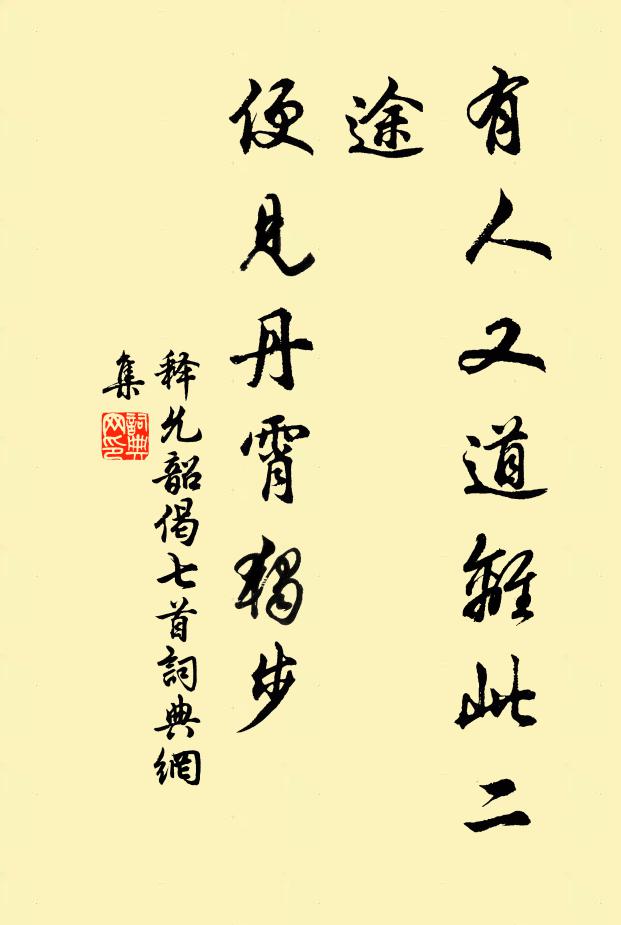 有人又道離此二
途
便見丹霄獨步
释允韶偈七首詞典網
集
詞典
网印